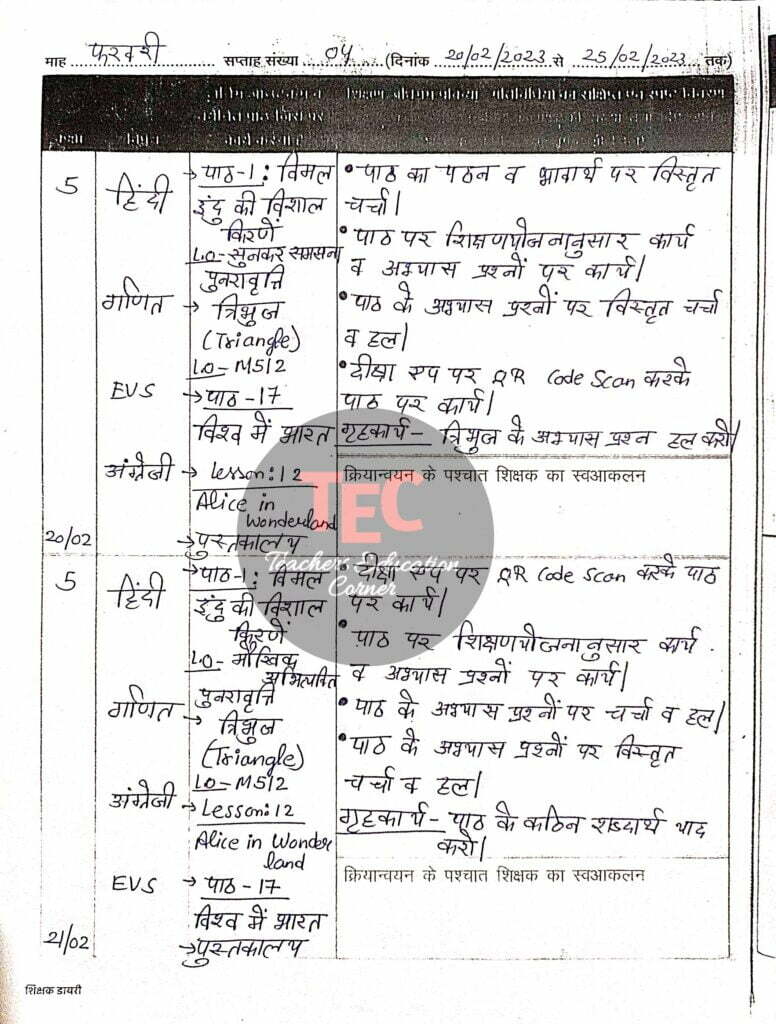 माह फरवरी सप्ताह संख्या 04 (दिनांक 20/02/2023 से 25/02/2023 तक)
कक्षा विषय
5 हिंदी → पाठ-1 : विमल
इंदु की विशाल
किरणें
LO-सुनकर समझना
• पाठ का पठन व भावार्थ पर विस्तृत
चर्चा।
• पाठ पर शिक्षणयोजनानुसार कार्य
व अभ्यास प्रश्नों पर कार्य।
गणित पुनरावृत्ति
→ त्रिभुज
(Triangle)
LO- M512
• पाठ के अभ्यास प्रश्नों पर विस्तृत चर्चा
व हल।
EVS → पाठ -17
विश्व में भारत
• दीक्षा एप पर QR Code Scan करके
पाठ पर कार्य।
गृहकार्य- त्रिभुज के अभ्यास प्रश्न हल करो।
अंग्रेजी → Lesson:12
Alice in
Wonderland
→ पुस्तकालय
क्रियान्वयन के पश्चात शिक्षक का स्वआकलन
20/02
TEC
Teachers Education
Corner
5 हिंदी → पाठ-1: विमल
इंदु की विशाल
किरणें
LO- मौखिक
• दीक्षा एप पर QR Code Scan करके पाठ
पर कार्य।
• पाठ पर शिक्षणयोजनानुसार कार्य
व अभ्यास प्रश्नों पर कार्य।
गणित पुनरावृत्ति
→ त्रिभुज
(Triangle)
LO- M512
• पाठ के अभ्यास प्रश्नों पर चर्चा व हल।
• पाठ के अभ्यास प्रश्नों पर विस्तृत
चर्चा व हल।
अंग्रेजी → Lesson:12
Alice in Wonder
land
गृहकार्य- पाठ के कठिन शब्दार्थ याद
करो।
EVS → पाठ -17
विश्व में भारत
→ पुस्तकालय
क्रियान्वयन के पश्चात शिक्षक का स्वआकलन
21/02
शिक्षक डायरी